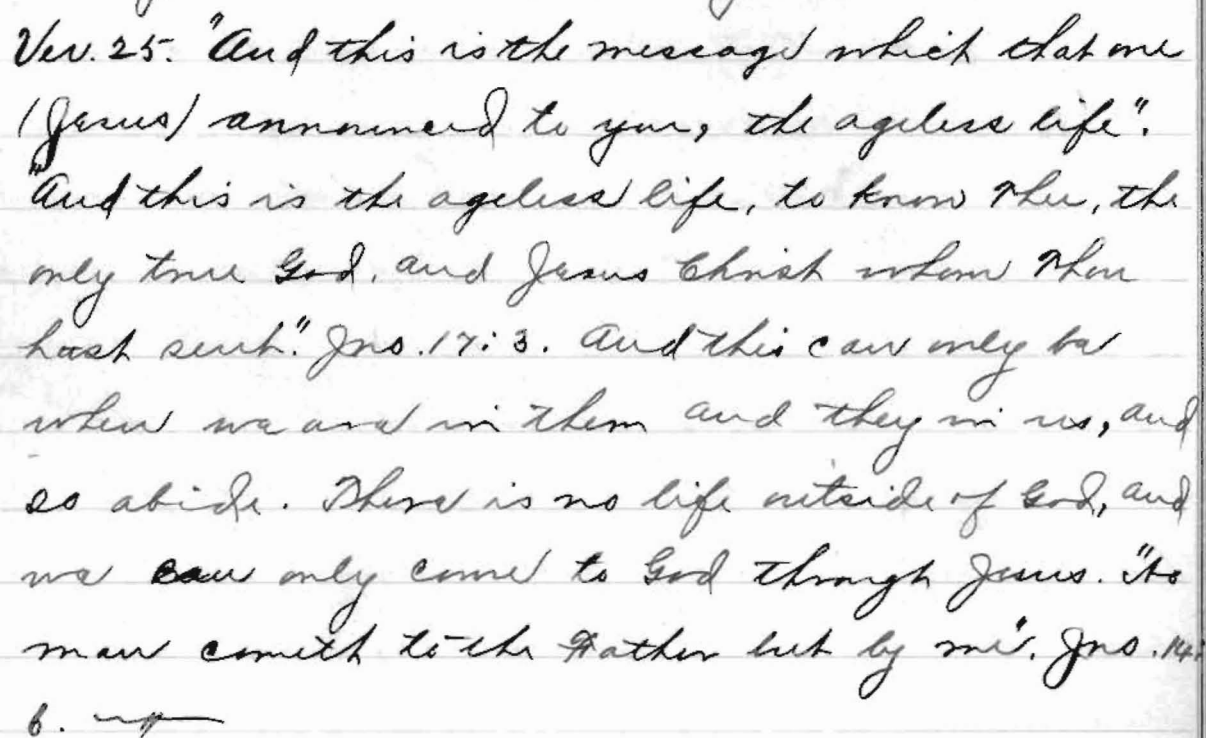 Ver. 25. "And this is the message which that one
(Jesus) announced to you, the ageless life".
"And this is the ageless life, to know Thee, the
only true God, and Jesus Christ whom Thou
hast sent." Jno. 17:3. And this can only be
when we are in them and they in us, and
so abide. There is no life outside of God, and
we can only come to God through Jesus. "No
man cometh to the Father but by me". Jno. 14:
6.